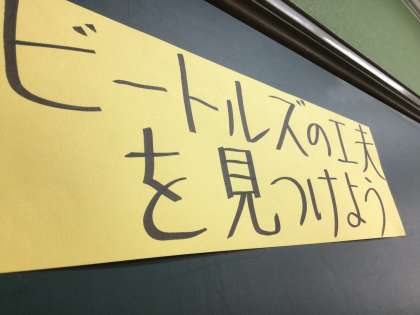 ビートルズの工夫
を見つけよう